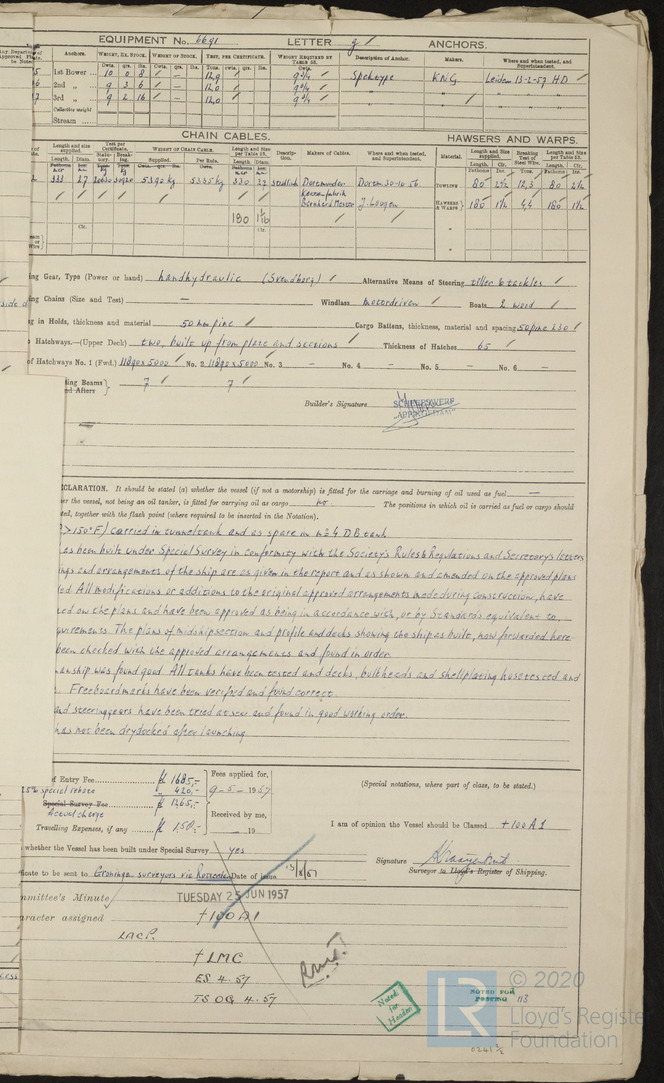 EQUIPMENT No. 6691 LETTER g / ANCHORS.
Anchors. WEIGHT, EX. STOCK. WEIGHT OF STOCK. TEST, PER CERTIFICATE. WEIGHT REQUIRED BY TABLE 53. Description of Anchor. Makers. Where and when tested, and Superintendent.
1st Bower ... 10 0 8 Leiden 13-2-57 HD
2nd „ ... 9 3 6
3rd „ ... 9 2 16
Collective weight
Stream ...
CHAIN CABLES. HAWSERS AND WARPS.
Length and size supplied. Test per Certificate. WEIGHT OF CHAIN CABLE. Length and size per Table 53. Description. Makers of Cables. Where and when tested, and Superintendent. Material. Length and Size supplied. Breaking Test of Steel Wire. Length and Size per Table 53.
Length. Diam. Supplied. Per Rule. Length. Diam.
333 27 5390 kg 5335 kg 330 27 Dortmunder Dortm 30-10-56. TOWLINE 80 2½ 12,3 80 2½
Kettenfabrik
HAWSERS & WARPS 180 1½ 4,4 180 1½
180 1 1/16
ing Gear, Type (Power or hand) handhydraulic (Svendborg) / Alternative Means of Steering tiller & tackles /
ing Chains (Size and Test) — Windlass motordriven / Boats 2 wood /
g in Holds, thickness and material 50 mm pine / Cargo Battens, thickness, material and spacing 50 pine 230 /
Hatchways.—(Upper Deck) two, built up from plate and sections / Thickness of Hatches 65 /
of Hatchways No. 1 (Fwd.) 11890x5000 / No. 2 11890x5000 / No. 3 – No. 4 – No. 5 – No. 6 –
ing Beams 7 / 7 /
nd Afters
Builder's Signature
CLARATION. It should be stated (a) whether the vessel (if not a motorship) is fitted for the carriage and burning of oil used as fuel —
er the vessel, not being an oil tanker, is fitted for carrying oil as cargo no. The positions in which oil is carried as fuel or cargo should
ed, together with the flash point (where required to be inserted in the Notation).
>150°F) carried in tunneltank and as spare in no 4 DB tank
as been built under Special Survey in conformity with the Society's Rules & Regulations and Secretary's letters
ings and arrangements of the ship are as given in the report and as shown and amended on the approved plans
ed. All modifications or additions to the original approved arrangements made during construction, have
ed on the plans and have been approved as being in accordance with, or by Standards equivalent to,
quirements. The plans of midshipsection and profile and decks showing the ship as built, now forwarded here
been checked with the approved arrangements and found in order.
anship was found good. All tanks have been tested and decks, bulkheads and shellplating hosetested and
. Freeboardmarks have been verified and found correct.
nd steeringgears have been tried at sea and found in good working order.
has not been drydocked after launching.
f Entry Fee............ £ 1685,- Fees applied for,
25% special rebate „ 420,- 9-5-1957
Special Survey Fee... £ 1265,-
Actual charge Received by me,
Travelling Expenses, if any ...... £ 150,- 19
(Special notations, where part of class, to be stated.)
I am of opinion the Vessel should be Classed +100A1
whether the Vessel has been built under Special Survey yes
Signature
Surveyor to Lloyd's Register of Shipping.
ficate to be sent to Groningen surveyors via Date of issue
mmittee's Minute TUESDAY 25 JUN 1957
aracter assigned +100A1
LACP.
+LMC
ES 4.57
TS OG 4.57
Noted for Header
NOTED FOR
© 2020
LR
Lloyd's Register
Foundation